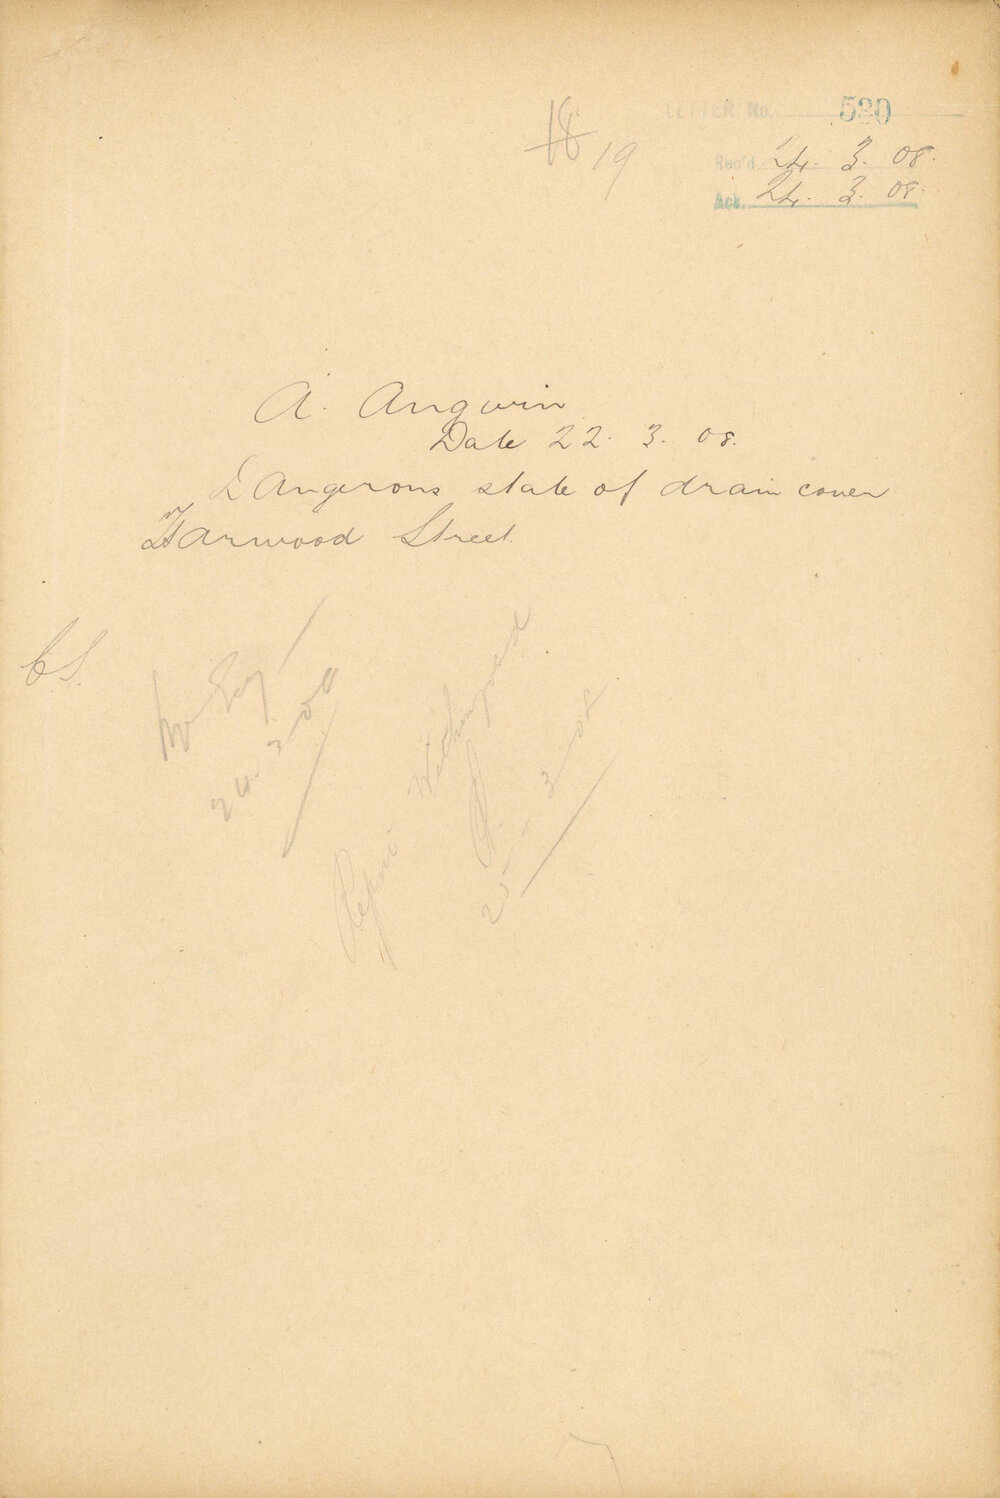 18 19
LETTER No. 530
Rec'd 24. 3. 08.
Ack. 24. 3. 08.
A. Angwin
Date 22. 3. 08.
Dangerous state of drain cover
Harwood Street.
24. 3. 08
25 - 3 - 08